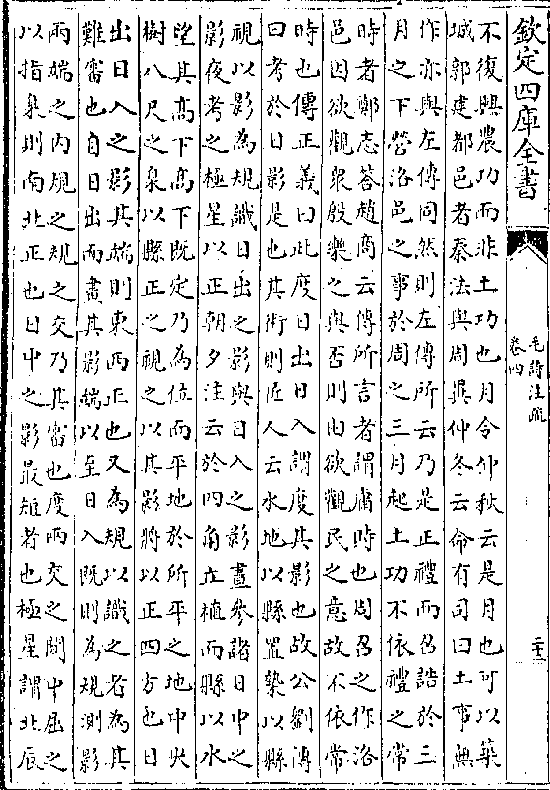 欽定四庫全書
毛詩注疏
卷四
不復興農功而非土功也月令仲秋云是月也可以築
城郭建都邑者秦法與周異仲冬云命有司曰土事無
作亦與左傳同然則左傳所云乃是正禮而召誥於三
月之下營洛邑之事於周之三月起土功不依禮之常
時者鄭志荅趙商云傳所言者謂庸時也周召之作洛
邑因欲觀衆殷樂之與否則由欲觀民之意故不依常
時也傳正義曰此度日出日入謂度其影也故公劉傳
曰考於日影是也其術則匠人云水地以縣置槷以縣
視以影為規識日出之影與日入之影晝參諸日中之
影夜考之極星以正朝夕注云於四角立植而縣以水
望其高下高下既定乃為位而平地於所平之地中央
樹八尺之臬以縣正之視之以其影將以正四方也日
出日入之影其端則東西正也又為規以識之者為其
難審也自日出而畫其影端以至日入既則為規測影
兩端之內規之規之交乃其審也度兩交之間中屈之
以指臬則南北正也日中之影最短者也極星謂北辰